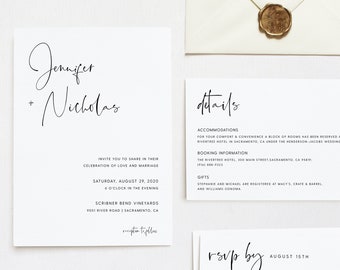 Jennifer
+
Nicholas
INVITE YOU TO SHARE IN THEIR
CELEBRATION OF LOVE AND MARRIAGE
SATURDAY, AUGUST 29, 2020
4 O'CLOCK IN THE EVENING
SCRIBNER BEND VINEYARDS
9051 RIVER ROAD | SACRAMENTO, CA
reception to follow
details
ACCOMMODATIONS
FOR YOUR COMFORT & CONVENIENCE A BLOCK OF ROOMS HAS BEEN RESERVED
RIVERTREE HOTEL IN SACRAMENTO, CA UNDER THE HENDERSON JACOBS WEDDING
BOOKING INFORMATION
THE RIVERTREE HOTEL, 300 MAIN STREET, SACRAMENTO, CA
GIFTS
STEPHANIE AND MICHAEL ARE REGISTERED AT MACY'S, CRATE & BARREL
AND WILLIAMS SONOMA
rsvp by AUGUST 15TH